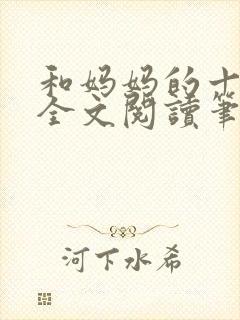 和妈妈的十
全文閱讀筆
河下水希